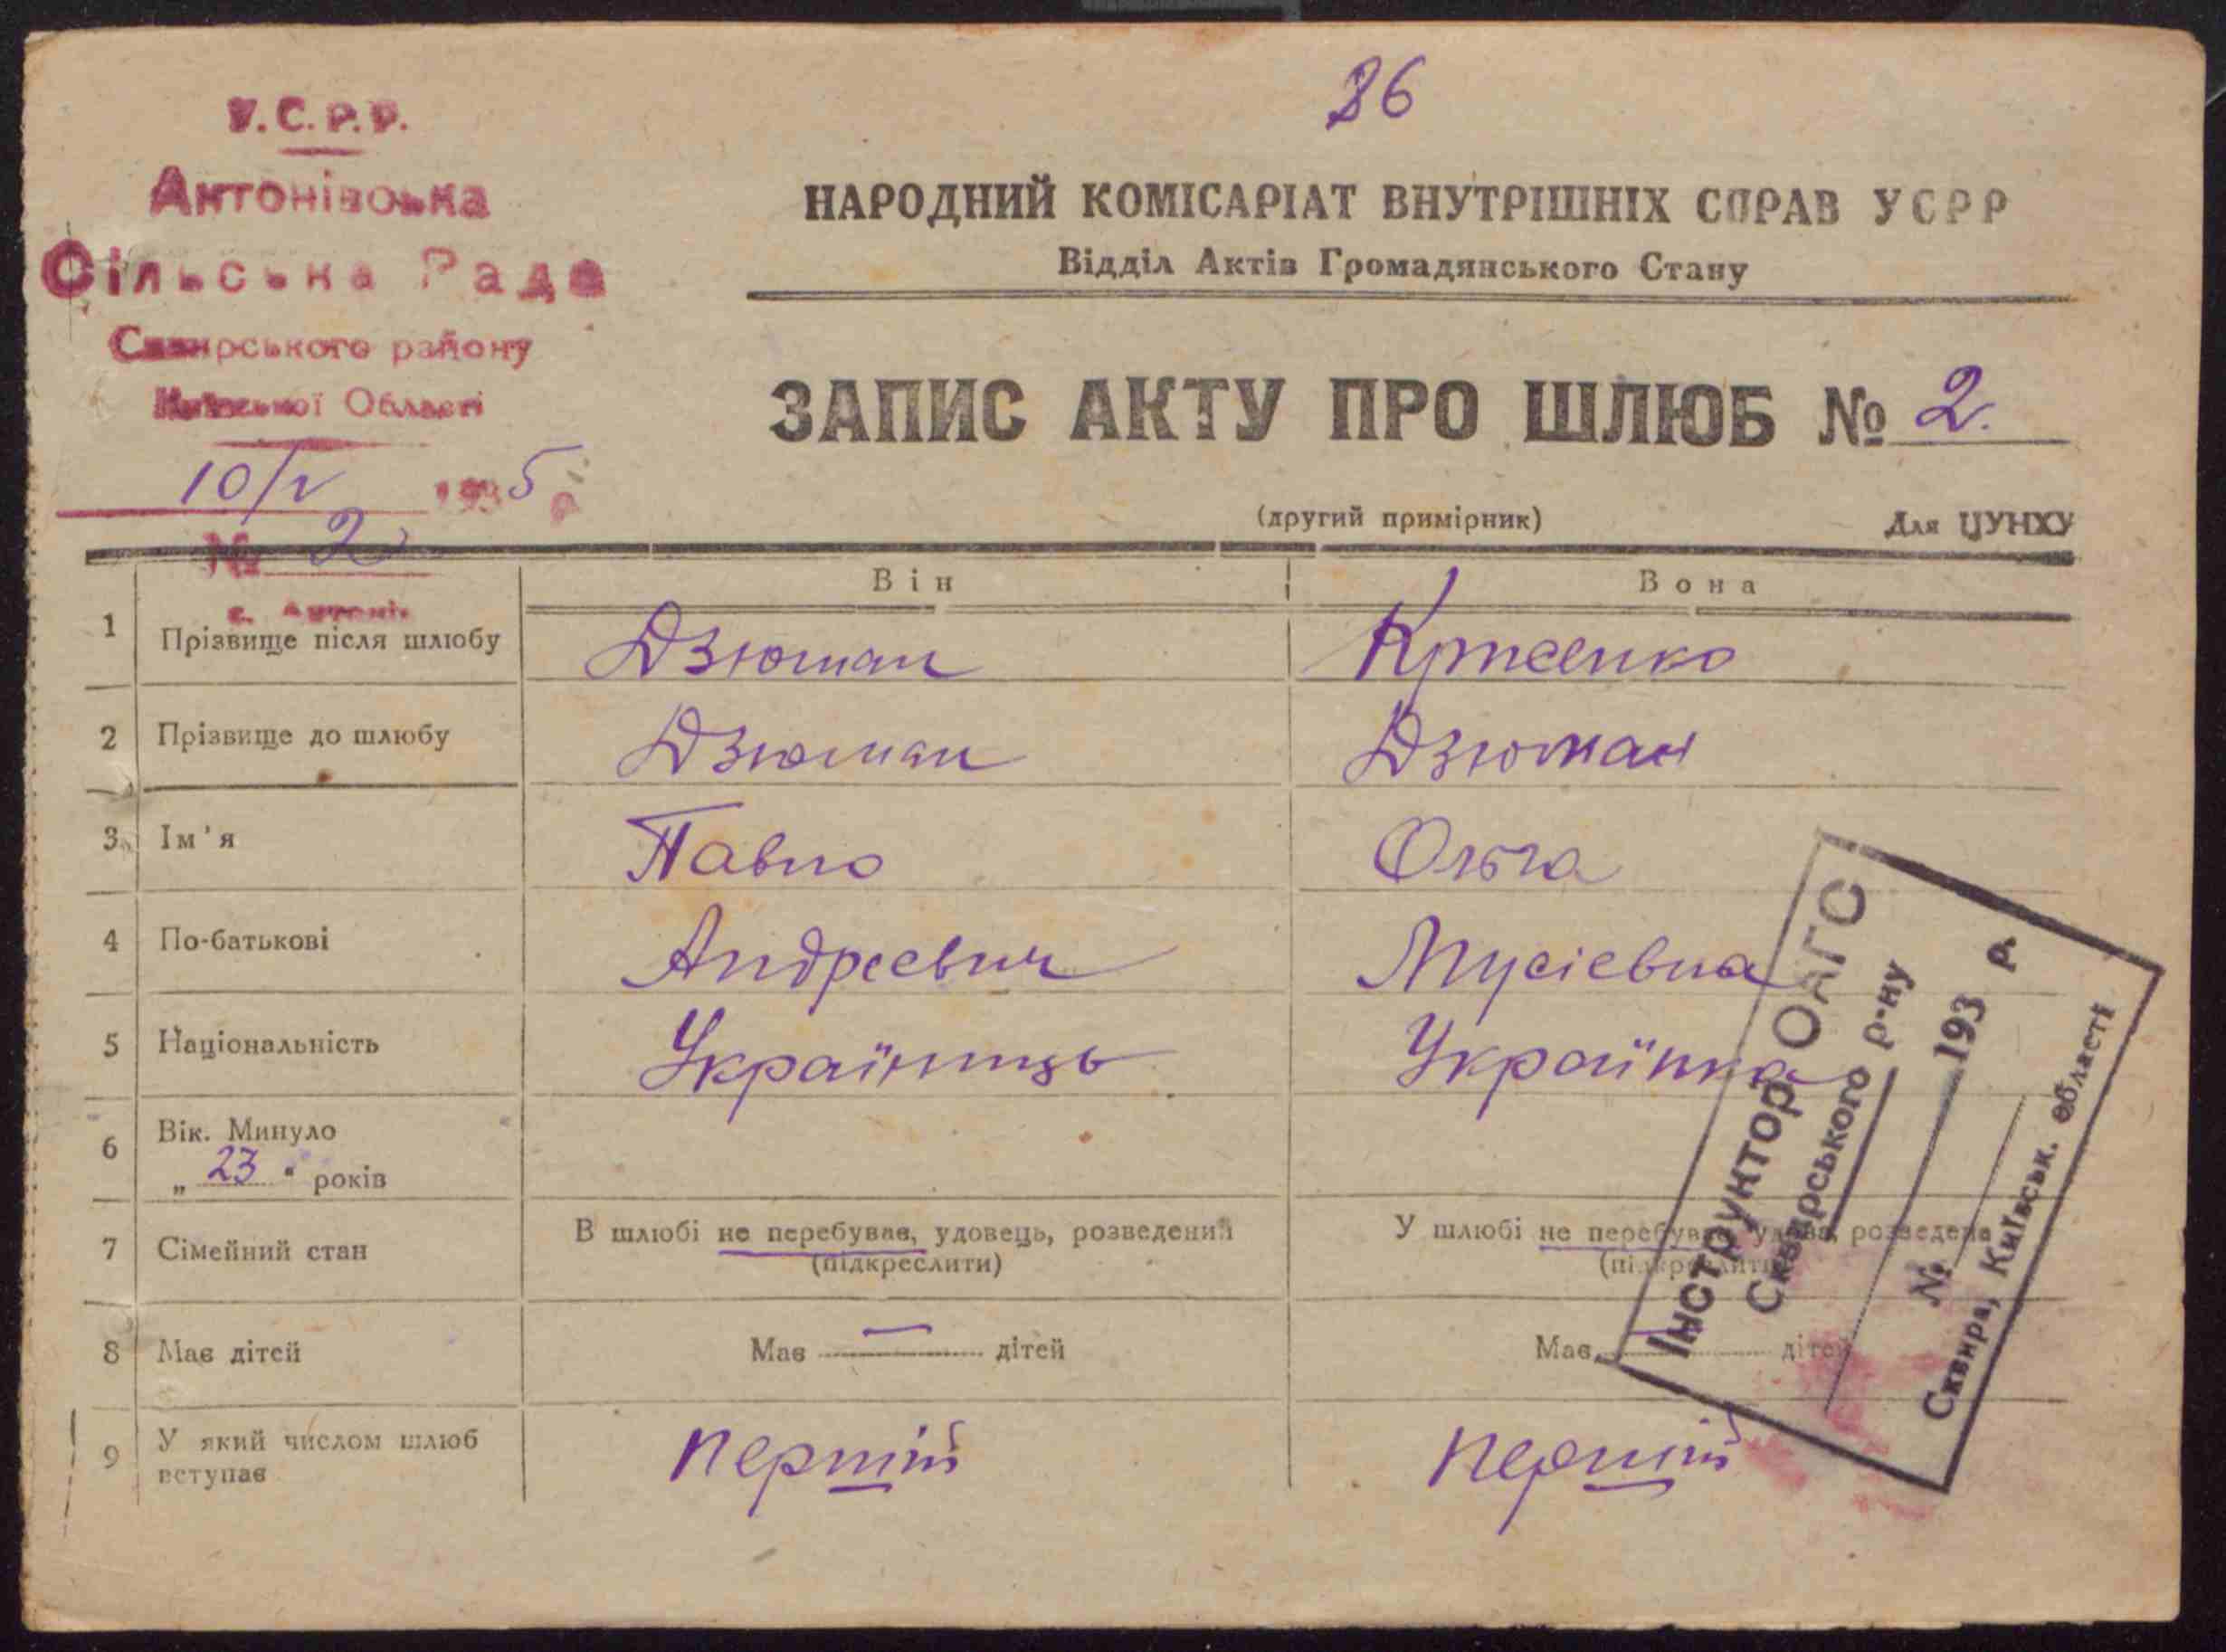 86
У.С.Р.Р.
Антонівська
Сільська Рада
Сквирського району
Київської Області
10/V 1935 р
№ 2
с. Антонів
НАРОДНИЙ КОМІСАРІАТ ВНУТРІШНІХ СПРАВ УСРР
Відділ Актів Громадянського Стану
ЗАПИС АКТУ ПРО ШЛЮБ № 2.
(другий примірник) Для ЦУНХУ
Він Вона
1 Прізвище після шлюбу Дзюман
2 Прізвище до шлюбу Дзюман Дзюман
3 Ім'я Павло Ольга
4 По-батькові Андреевич Мусієвна
5 Національність Українець Українка
6 Вік. Минуло
„ 23 " років
7 Сімейний стан В шлюбі не перебував, удовець, розведений У шлюбі не перебував, удова, розведена
(підкреслити) (підкреслити)
8 Має дітей Має — дітей Має — дітей
9 У який числом шлюб вступає перший перший
Інструктор ОАГС
Сквирського р-ну
193 р.
№
Сквира, Київськ. області